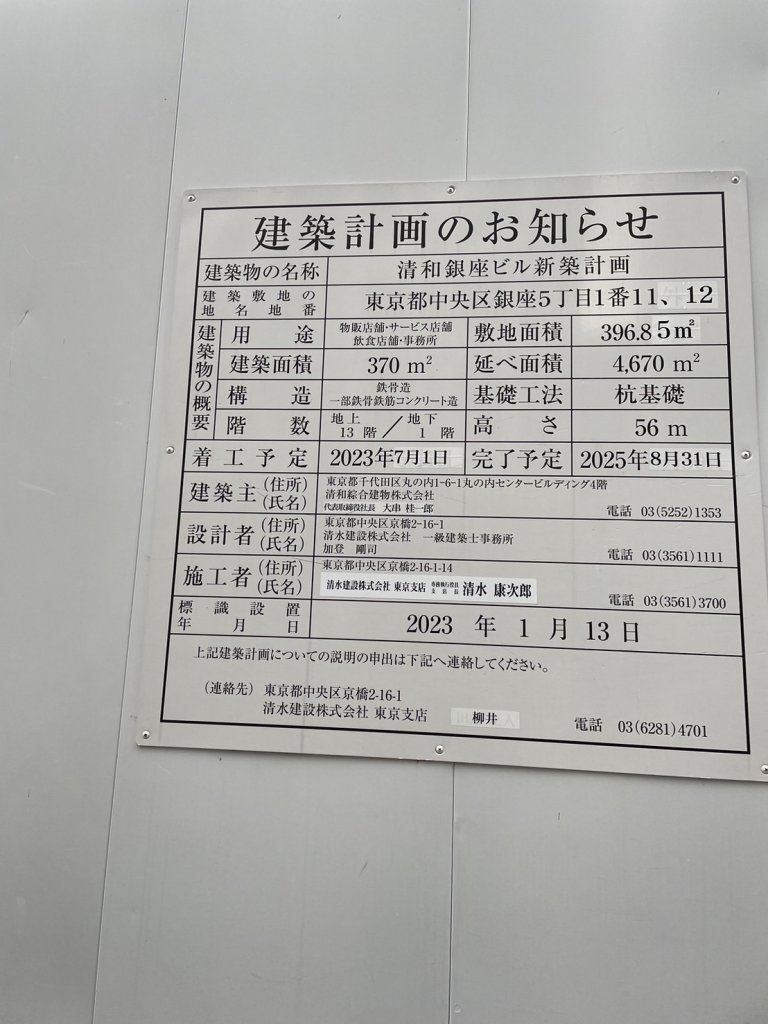 建築計画のお知らせ
建築物の名称 清和銀座ビル新築計画
建築敷地の地名地番 東京都中央区銀座5丁目1番11、12
建築物の概要
用途 物販店舗・サービス店舗 飲食店舗・事務所 敷地面積 396.85㎡
建築面積 370 m² 延べ面積 4,670 m²
構造 鉄骨造 一部鉄骨鉄筋コンクリート造 基礎工法 杭基礎
階数 地上13階/地下1階 高さ 56 m
着工予定 2023年7月1日 完了予定 2025年8月31日
建築主(住所)(氏名) 東京都千代田区丸の内1-6-1丸の内センタービルディング4階
清和綜合建物株式会社
代表取締役社長 大串 桂一郎 電話 03(5252)1353
設計者(住所)(氏名) 東京都中央区京橋2-16-1
清水建設株式会社 一級建築士事務所
加登 剛司 電話 03(3561)1111
施工者(住所)(氏名) 東京都中央区京橋2-16-1-14
清水建設株式会社 東京支店 専務執行役員 支店長 清水 康次郎 電話 03(3561)3700
標識設置年月日 2023 年 1 月 13 日
上記建築計画についての説明の申出は下記へ連絡してください。
(連絡先) 東京都中央区京橋2-16-1
清水建設株式会社 東京支店 柳井 電話 03(6281)4701